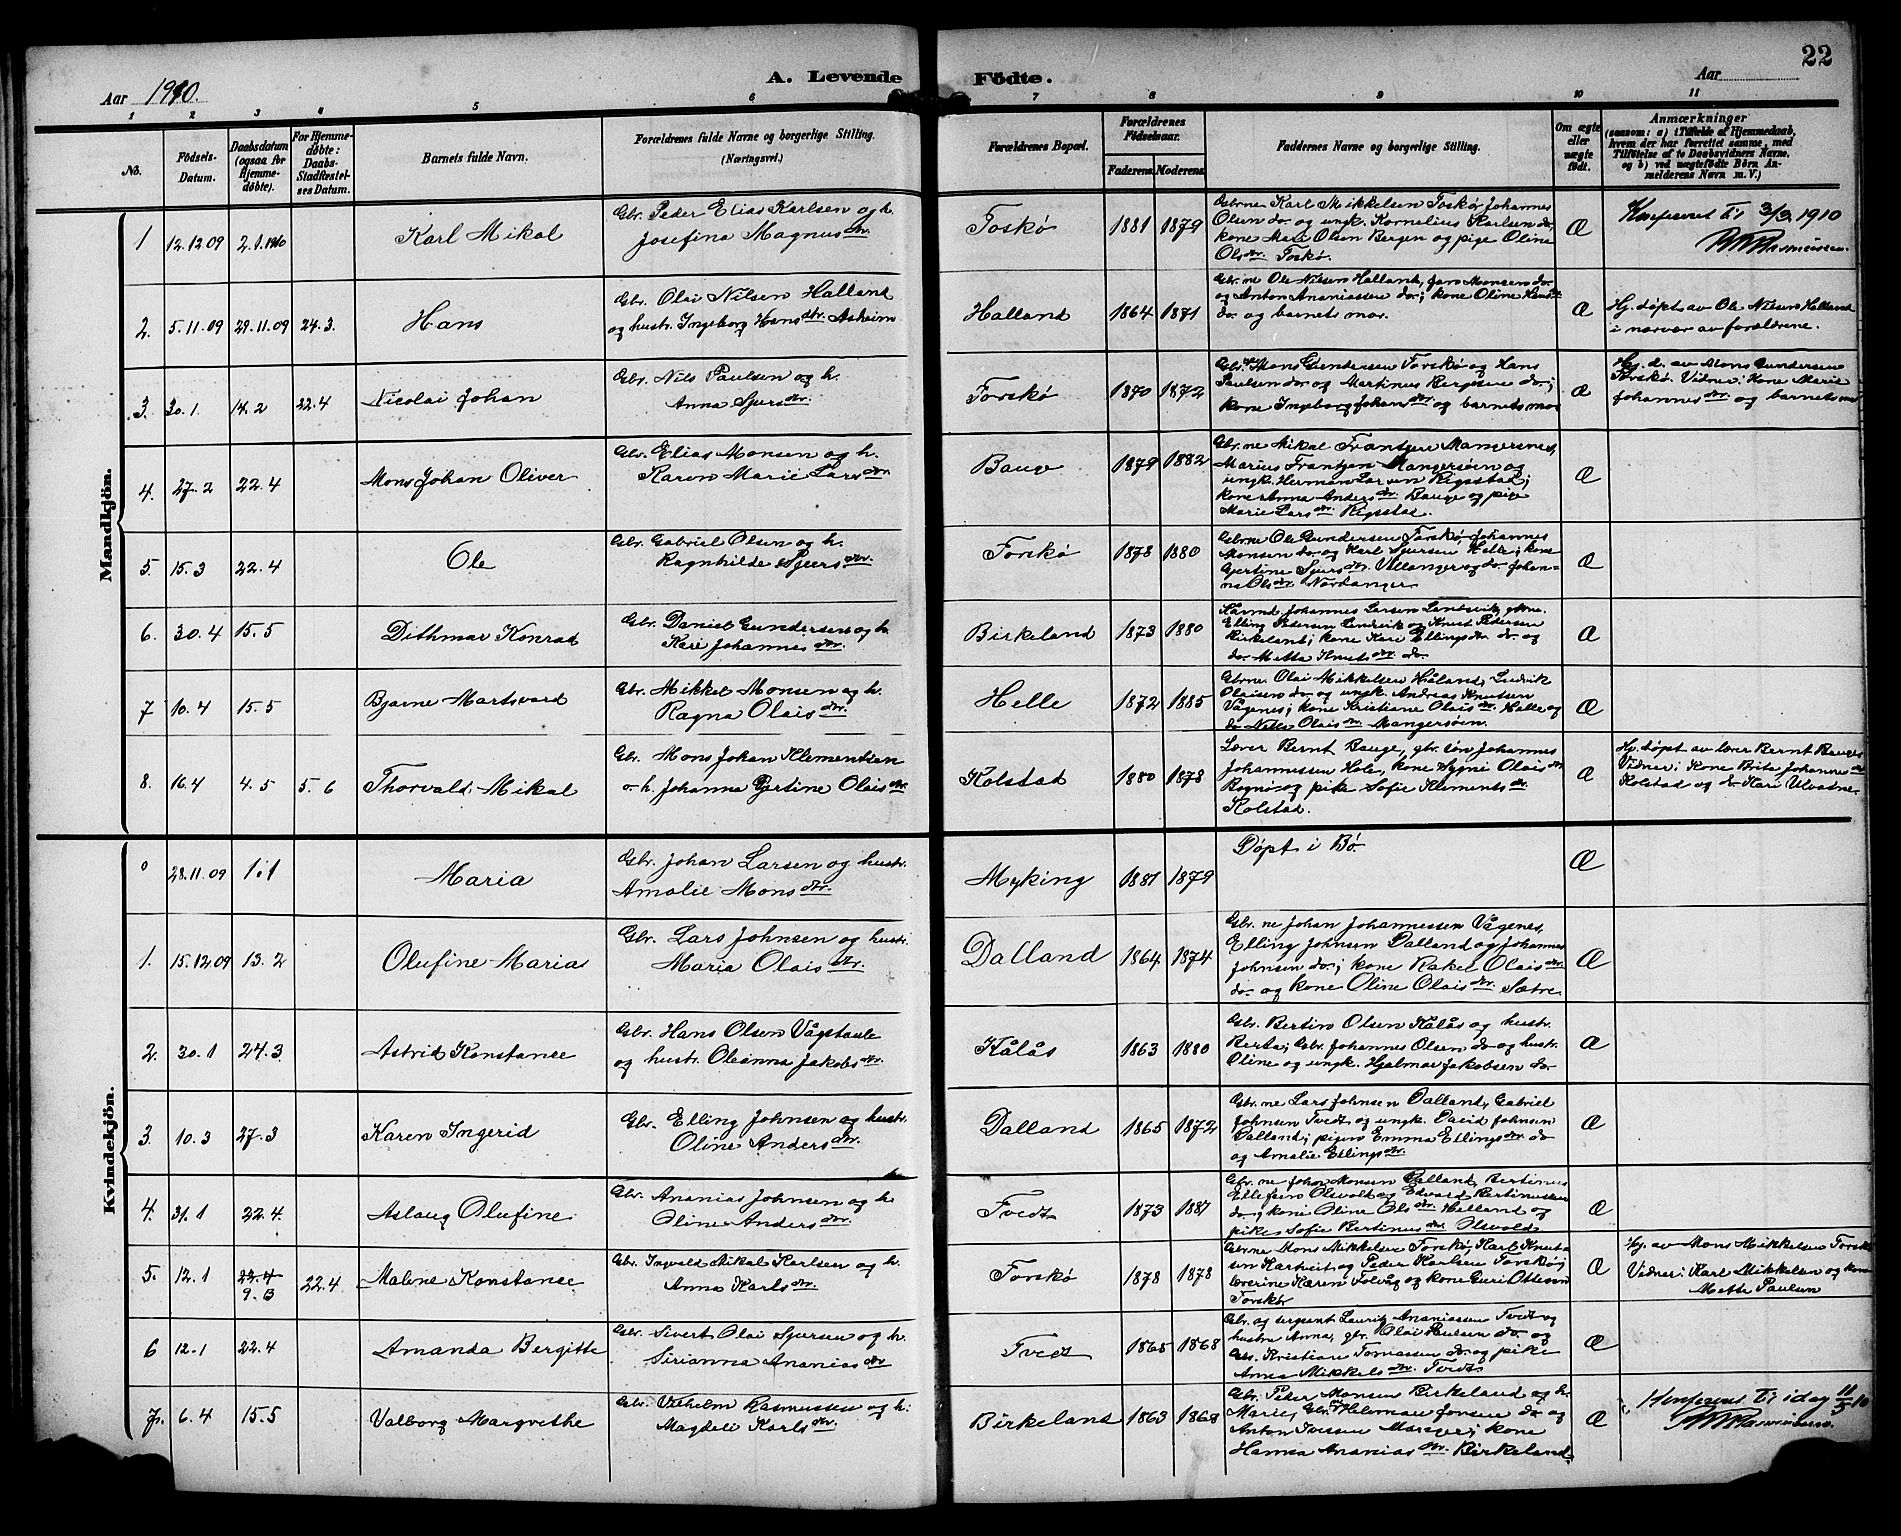 22
A. Levende Födte.
Aar 1910.
Aar
1 2 3 4 5 6 7 8 9 10 11
No.
Födsels-Datum.
Daabsdatum (ogsaa for hjemme-døbte).
For Hjemme-døbte: Daabs-Stadfæstel-ses Datum.
Barnets fulde Navn.
Forældrenes fulde Navne og borgerlige Stilling. (Næringsvei.)
Forældrenes Bopæl.
Forældrenes Födselsaar.
Faderens Moderens
Faddernes Navne og borgerlige Stilling.
Om ægte eller uægte födt.
Anmærkninger
(saasom: a) i Tilfælde af Hjemmedaab,
hvem der har forrettet samme, med
Tilföielse af to Daabsvidners Navne,
og b) ved uægtefödte Börn An-
melderens Navn m. V.)
Mandkjön.
1 12.12.09 2.1.1910 Karl Mikal
Gbr. Peder Elias Karlsen og h.
Josefina Magnus dtr.
Toskø 1881 1879
Gbrne Karl Mikkelsen Toskø, Johannes
Olsen do. og ungk. Kornelius Karlsen do
kone Mari Olsen Bergen og pige Oline
Ols dtr. Toskø.
Æ
Konfereret til 3/3 1910
Rasmussen.
2. 5.11.09 29.11.09 24.3. Hans
Gbr. Olai Nilsen Halland
og hustr. Ingeborg Hans dtr. Askeim
Halland 1864 1871
Gbr.ne Ole Nilsen Halland, Jens Monsen do.
og Anton Ananiassen do; kone Oline Hans dtr
do. og barnets mor.
Æ
Hj. døpt av Ole Nilsen Halland
i nærvær av forældrene.
3. 30.1. 14.2 22.4 Nicolai Johan
Gbr. Nils Paulsen og h.
Anna Sjurs dtr.
Forskø 1870 1872
Gbr. Mons Gundersen Forskø og Hans
Paulsen do. og Martinus Bergesen do;
kone Ingeborg Johans dtr og barnets mor
Æ
Hj. d. av Mons Gundersen
Forskø. Vidner: Kone Marie
Johannes dtr og barnets mor
4. 27.2 22.4 Mons Johan Oliver
Gbr. Elias Monsen og h.
Karen Marie Lars dtr
Bauge 1879 1882
Gbr.ne Mikal Frantzen Mangersnes,
Marius Frantzen Mangersøen og
ungk. Herman Larsen Rigsstad;
kone Anna Anders dtr. Bauge og pige
Marie Lars dtr. Rigsstad.
Æ
5. 15.3 22.4 Ole
Gbr. Gabriel Olsen og h.
Ragnhilde Sjurs dtr.
Forskø 1878 1880
Gbr.ne Ole Gundersen Forskø, Johannes
Monsen do. og Karl Sjursen Helle; kone
Gjertine Sjurs dtr. Ullanger og do. Johan-
na Ols dtr. Nordanger
Æ
6. 30.4 15.5 Dithmar Konrad
Gbr. Daniel Gundersen og h.
Kari Johannes dtr.
Birkeland 1873 1880
Kårmd. Johannes Larsen Landsvik, gbrne.
Elling Pedersen Landsvik og Knut Pedersen
Birkeland; kone Kari Ellings dtr do. og
do. Metta Knuts dtr do.
Æ
7 10.4 15.5 Bjarne Martsvard
Gbr. Mikkel Monsen og h.
Ragna Olais dtr.
Helle 1872 1885
Gbrne. Olai Mikkelsen Håland, Ludvik
Olaisen do. og ungk. Andreas Knutsen
Vågenes; kone Kristiane Olais dtr. Helle og
do. Nille Olais dtr. Mangersøen.
Æ
8. 16.4 4.5 5.6 Thorvald Mikal
Gbr. Mons Johan Klementsen
o. h. Johanna Gjertine Olais dtr
Kolstad 1880 1878
Lærer Bernt Bauge, gbr. søn Johannes
Johannessen Hole, kone Sygni Olais dtr
Bognø og pike Sofie Klements dtr.
Kolstad.
Æ
Hj. døpt av lærer Bernt Bauge.
Vidner: Kone Brita Johannes dtr
Kolstad og do. Kari Ulvatne.
Kvindekjön.
0 28.11.09 1.1 Maria
Gbr. Johan Larsen og hustr.
Amalie Mons dtr.
Myking 1881 1879
Døpt i Bø.
Æ
1. 15.12.09 13.2 Olufine Maria
Gbr. Lars Johnsen og hustr.
Maria Olais dtr.
Dalland 1864 1874
Gbr.ne Johan Johannessen Vågenes,
Elling Johnsen Dalland og Johannes
Johnsen do; kone Rakel Olais dtr
do. og kone Oline Olais dtr. Sætre
Æ
2. 30.1 24.3 Astrid Konstance
Gbr. Hans Olsen Vågstaule
og hustr. Oleanna Jakobs dtr.
Kålås 1863 1880
Gbr. Bertin Olsen Kålås og hustr.
Berta; Gbr. Johannes Olsen do og hustr.
Oline og ungk. Hjalmar Jakobsen do.
Æ
3. 10.3 27.3 Karen Ingerid
Gbr. Elling Johnsen og hustr.
Oline Anders dtr.
Dalland 1865 1872
Gbr.ne Lars Johnsen Dalland, Gabriel
Johnsen Tvedt og ungk. David Johnsen
Dalland; piger Emma Ellings dtr. do
og Amalie Ellings dtr.
Æ
4. 31.1 22.4. Aslaug Olufine
Gbr. Ananias Johnsen og h.
Oline Anders dtr.
Tvedt 1873 1881
Gbr.ne Johan Monsen Dalland, Bertinus
Ellefsen Olsvold og Edvard Bertinussen
do; kone Oline Ols dtr Helland og
pike Sofie Bertinus dtr. Olsvold
Æ
5. 12.1 22.4 9.3 22.4 Malene Konstanse
Gbr. Ingvald Mikal Karlsen og h.
Anna Karls dtr.
Forskø 1878 1878
Gbrne Mons Mikkelsen Forskø, Karl Knut-
sen Kartveit og Peder Karlsen Forskø;
lærerine Karen Tolvåg og kone Guri Ottesen
Forskø
Æ
Hj. av Mons Mikkelsen Forskø
Vidner: Karl Mikkelsen og kone
Mette Paulsen
6 12.1 22.4 Amanda Bergitte
Gbr. Sivert Olai Sjursen og h.
Sirianna Ananias dtr
Tvedt 1865 1868
Gbr. og sergent Lauritz Ananiassen Tvedt og
hustru Anna, gbr. Olai Paulsen do. og
Gbr. Kristian Tomassen do. og pike
Anna Mikkels dtr. Tvedt
Æ
7. 6.4 15.5 Valborg Margrethe
Gbr. Vilhelm Rasmussen og h.
Magdeli Karls dtr.
Birkeland 1863 1868
Gbr. Peder Monsen Birkeland og h.
Marie, Gbr. Helman Jonsen do og
Anton Iversen Manger; kone
Hanna Ananias dtr. Birkeland.
Æ
Konfereret til idag 11/5 10
Rasmussen.